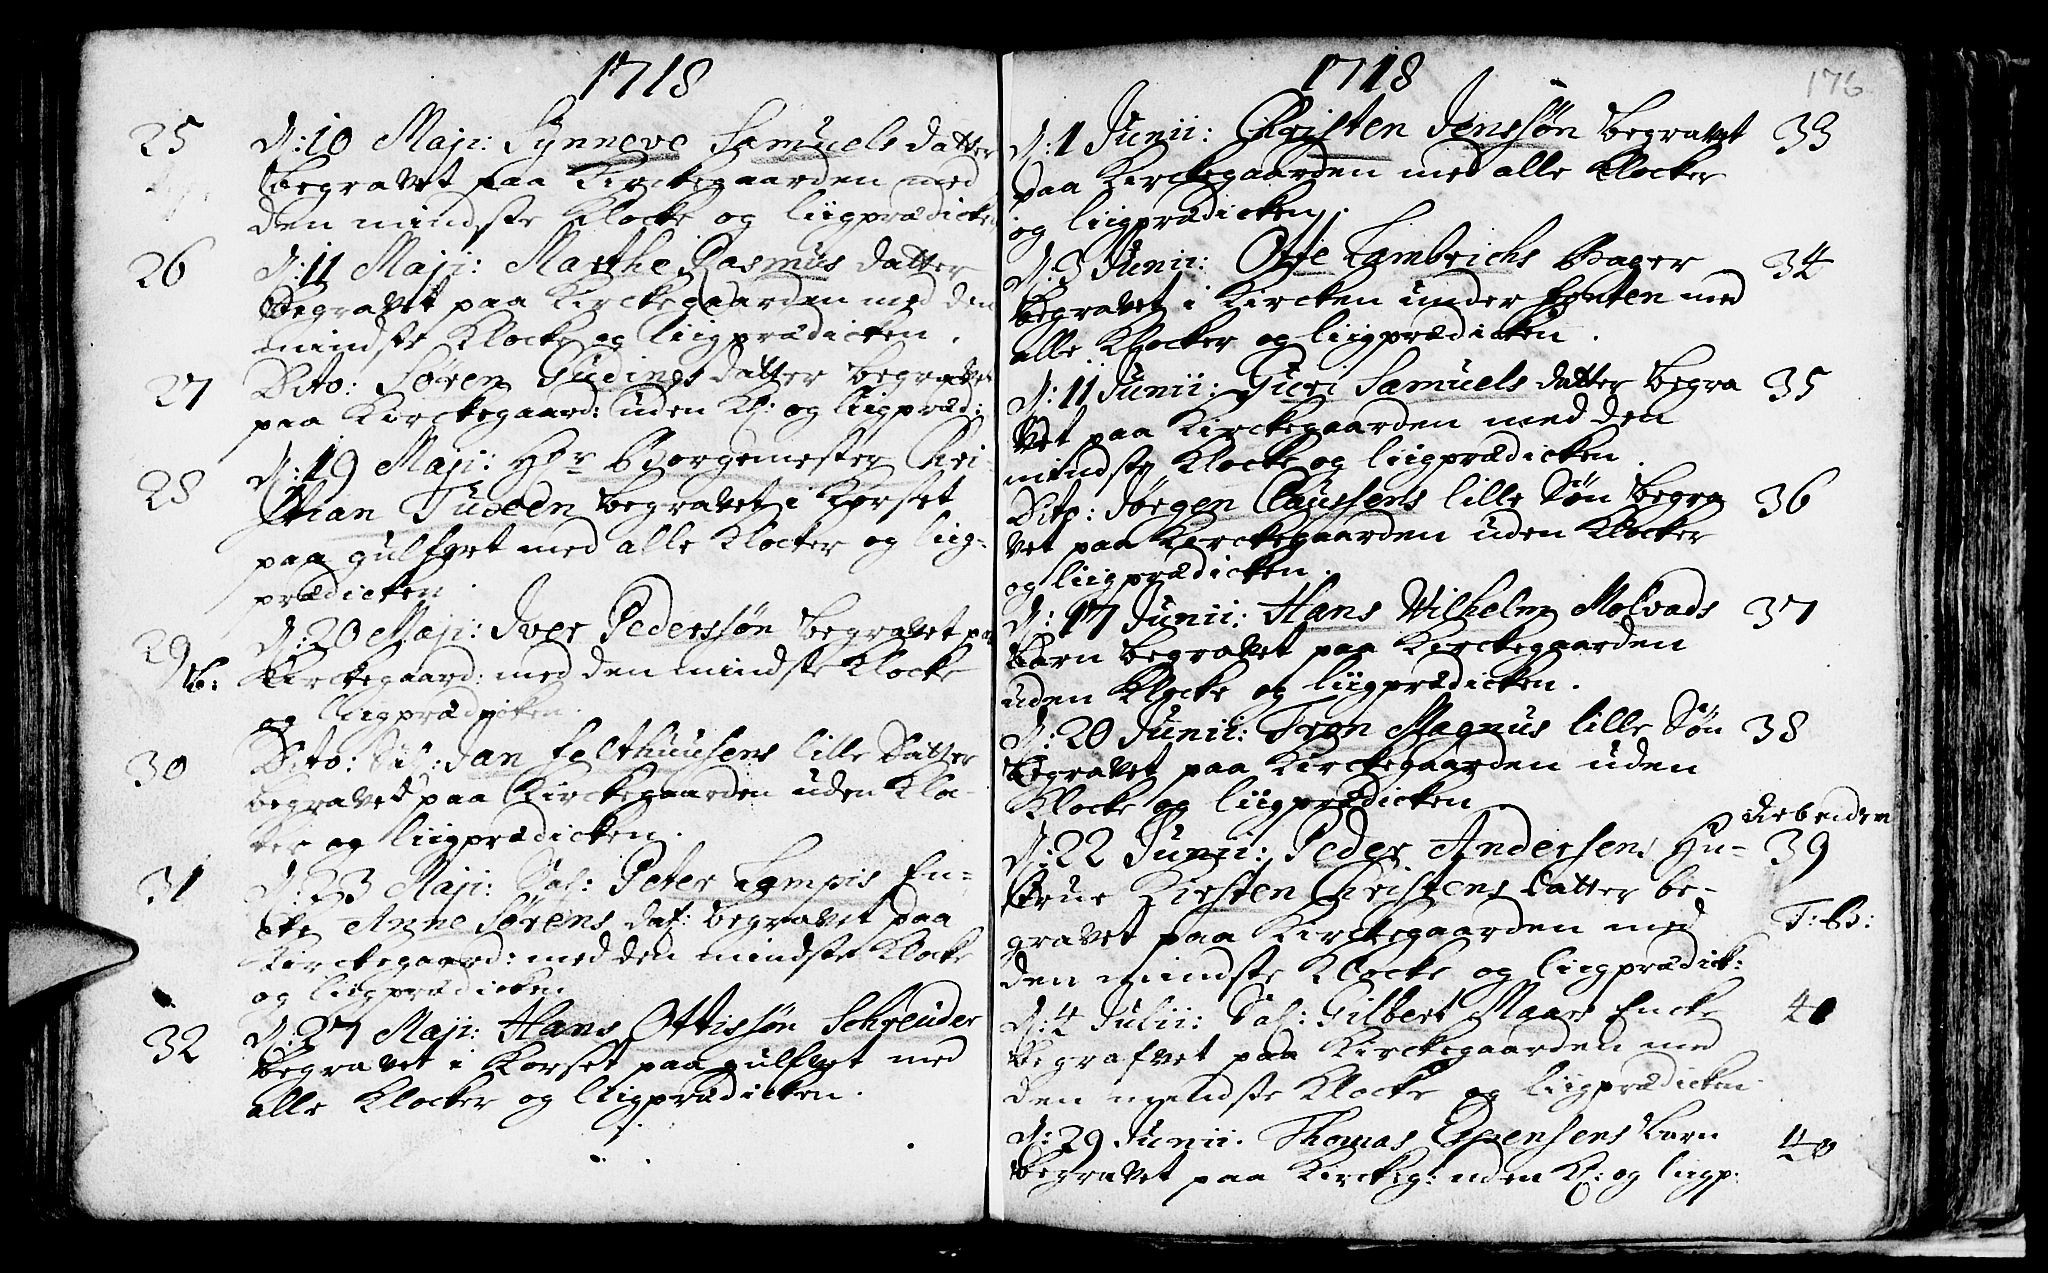 1718
25 D: 10 Maji: Synneve Samuels datter
begravet paa Kirckegaarden med
den mindste Klocke og liigprædicken
26 D: 11 Maji: Marthe Rasmus datter
begravet paa Kirckegaarden med den
mindste Klocke og liigprædicken.
27 Dito: Soren Gudings datter begravet
paa Kirckegaard: uden Kl: og liigpræd:
28 D: 19 Maji: Hr Borgemester Chri-
stian begravet i Korset
paa gulfvet med alle Klocker og liig-
prædicken.
29 D: 20 Maji: Iver Pederssøn begravet paa
B: Kirckegaard: med den mindste Klocke
og liigprædicken.
30 Dito: Jan Felthuusens lille Datter
begravet paa Kirckegaarden uden Klo-
cker og liigprædicken.
31 D: 23 Maji: Sal: Peter Lampis En-
cke Anne Sørens dat: begravet paa
Kirckegaard: med den mindste Klocke
og liigprædicken.
32 D: 27 Maji: Hans Ottissøn Schreuder
begravet i Korset paa gulfvet med
alle Klocker og liigprædicken.
1718
176
D: 1 Junii: Christen Jenssøn begravet 33
paa Kirckegaarden med alle Klocker
og liigprædicken.
D: 3 Junii: Otte Lambrichs Bager 34
begravet i Kircken under Fonten med
alle Klocker og liigprædicken.
D: 11 Junii: Guri Samuels datter begra 35
vet paa Kirckegaarden med den
mindste Klocke og liigprædicken.
Dito: Jørgen Claussens lille Søn begra 36
vet paa Kirckegaarden uden Klocker
og liigprædicken.
D: 17 Junii: Hans Wilhelm Molvads 37
barn begravet paa Kirckegaarden
uden Klocke og liigprædicken.
D: 20 Junii: Tron Magnus lille Søn 38
begravet paa Kirckegaarden uden
Klocke og liigprædicken
D: 22 Junii: Peder Andersens Hu- 39
strue Kirsten Christens datter be-
gravet paa Kirckegaarden med F: B:
den mindste Klocke og liigprædick:
D: 4 Julii: Sal: Gilbert Maars Encke 41
begrafvet paa Kirckegaarden med
den mindste Klocke og liigprædicken.
D: 29 Junii. Thomas Espensens barn 40
begravet paa Kirckeg: uden Kl: og liigp: